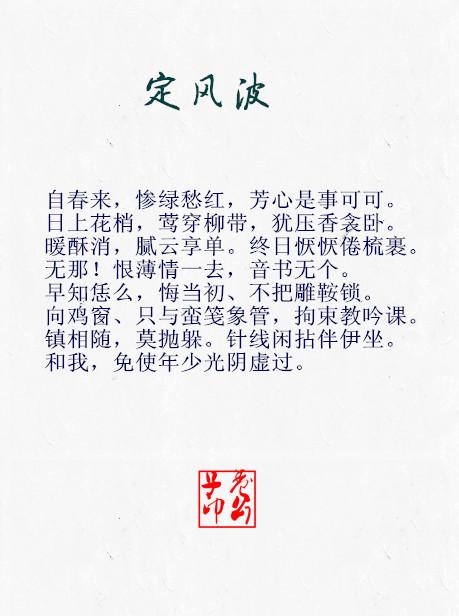 定风波
自春来，惨绿愁红，芳心是事可可。
日上花梢，莺穿柳带，犹压香衾卧。
暖酥消，腻云享单。终日恹恹倦梳裹。
无那！恨薄情一去，音书无个。
早知恁么，悔当初、不把雕鞍锁。
向鸡窗、只与蛮笺象管，拘束教吟课。
镇相随，莫抛躲。针线闲拈伴伊坐。
和我，免使年少光阴虚过。